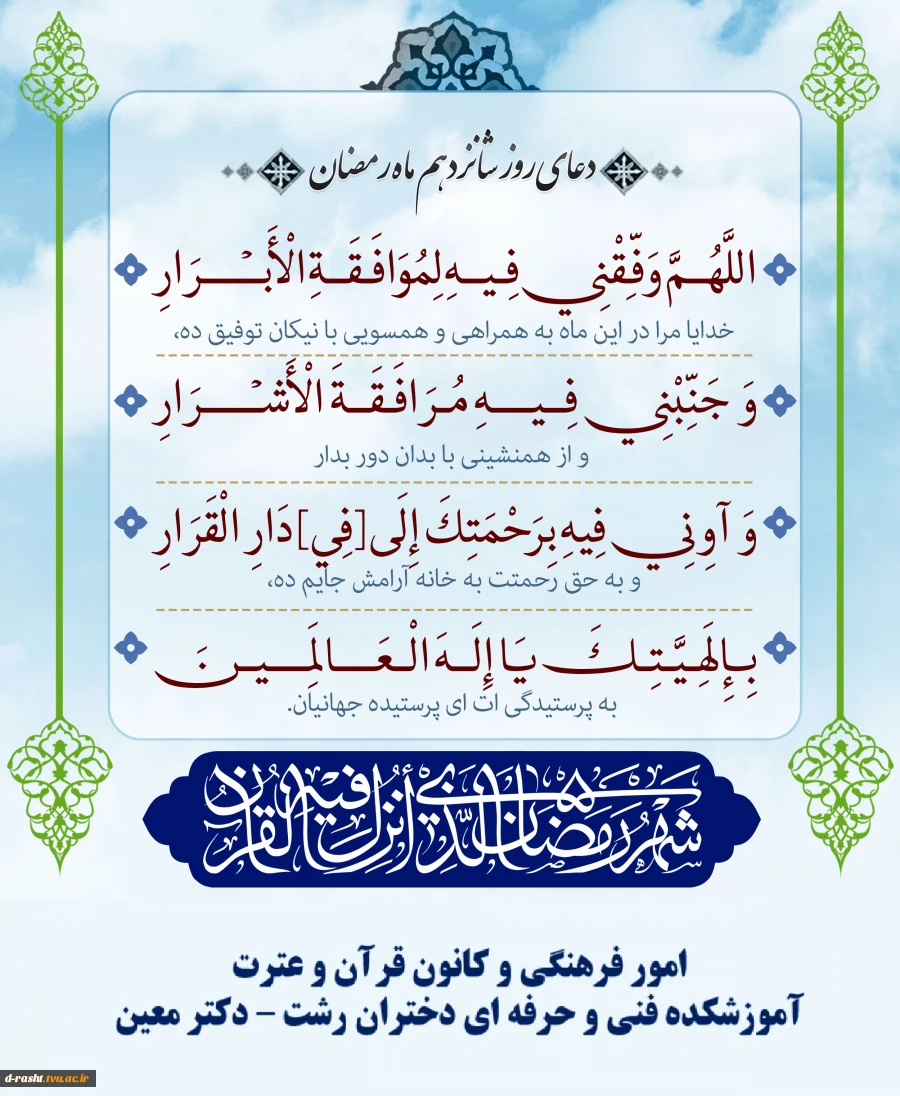 دعای روز شانزدهم ماه رمضان
اللَّهُمَّ وَفِّقْنِي فِيهِ لِمُوَافَقَةِ الْأَبْرَارِ
خدایا مرا در این ماه به همراهی و همسویی با نیکان توفیق ده،
وَ جَنِّبْنِي فِيهِ مُرَافَقَةَ الْأَشْرَارِ
و از همنشینی با بدان دور بدار
وَ آوِنِي فِيهِ بِرَحْمَتِكَ إِلَى [فِي] دَارِ الْقَرَارِ
و به حق رحمتت به خانه آرامش جایم ده،
بِإِلَهِيَّتِكَ يَا إِلَهَ الْعَالَمِينَ
به پرستیدگی ات ای پرستیده جهانیان.
شهر رمضان الذی أنزل فیه القرآن
امور فرهنگی و کانون قرآن و عترت
آموزشکده فنی و حرفه ای دختران رشت - دکتر معین
d-rasht.tvu.ac.ir